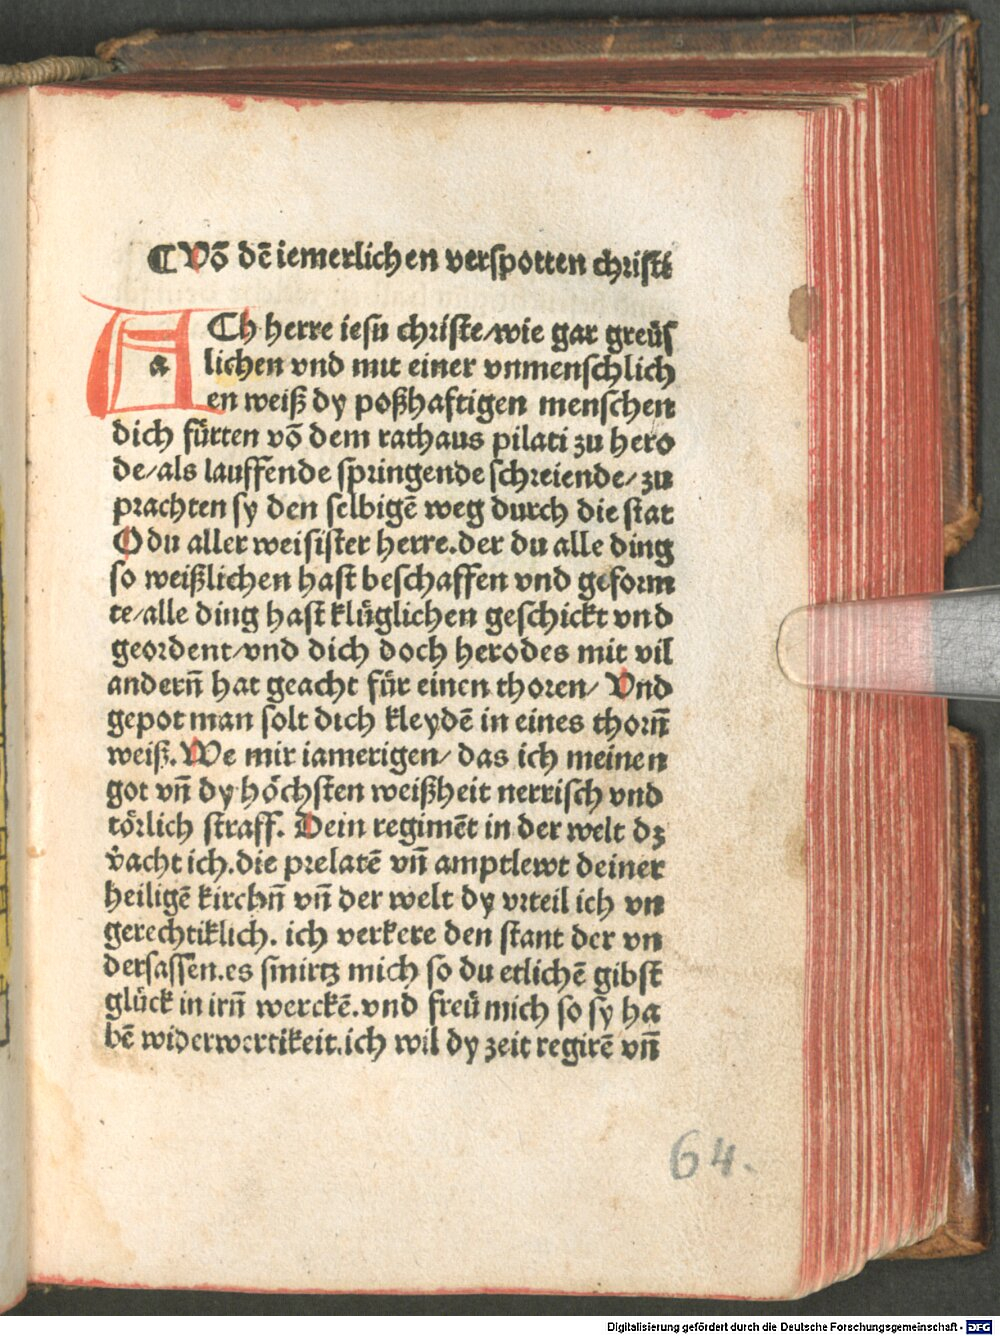 ¶ Vō dē iemerlichen verspotten christi
ACh herre iesu christe/wie gar greüs
a
lichen vnd mit einer vnmenschlich
en weiß dy poßhaftigen menschen
dich fürten vō dem rathaus pilati zu hero
de/als lauffende springende schreiende/zu
prachten sy den selbigē weg durch die stat
O du aller weisister herre.der du alle ding
so weißlichen hast beschaffen vnd geform
te/alle ding hast klüglichen geschickt vnd
geordent/vnd dich doch herodes mit vil
andern̄ hat geacht für einen thoren/ Vnd
gepot man solt dich kleydē in eines thorn̄
weiß.We mir iamerigen/ das ich meinen
got vn̄ dy höchsten weißheit nerrisch vnd
törlich straff. Dein regimēt in der welt dʒ
v̓acht ich.die prelatē vn̄ amptlewt deiner
heiligē kirchn̄ vn̄ der welt dy vrteil ich vn
gerechtiklich. ich verkere den stant der vn
dersassen.es smirtz mich so du etlichē gibst
glück in irn̄ werckē.vnd freü mich so sy ha
bē widerwertikeit.ich wil dy zeit regirē vn̄
64.
Digitalisierung gefördert durch die Deutsche Forschungsgemeinschaft - DFG